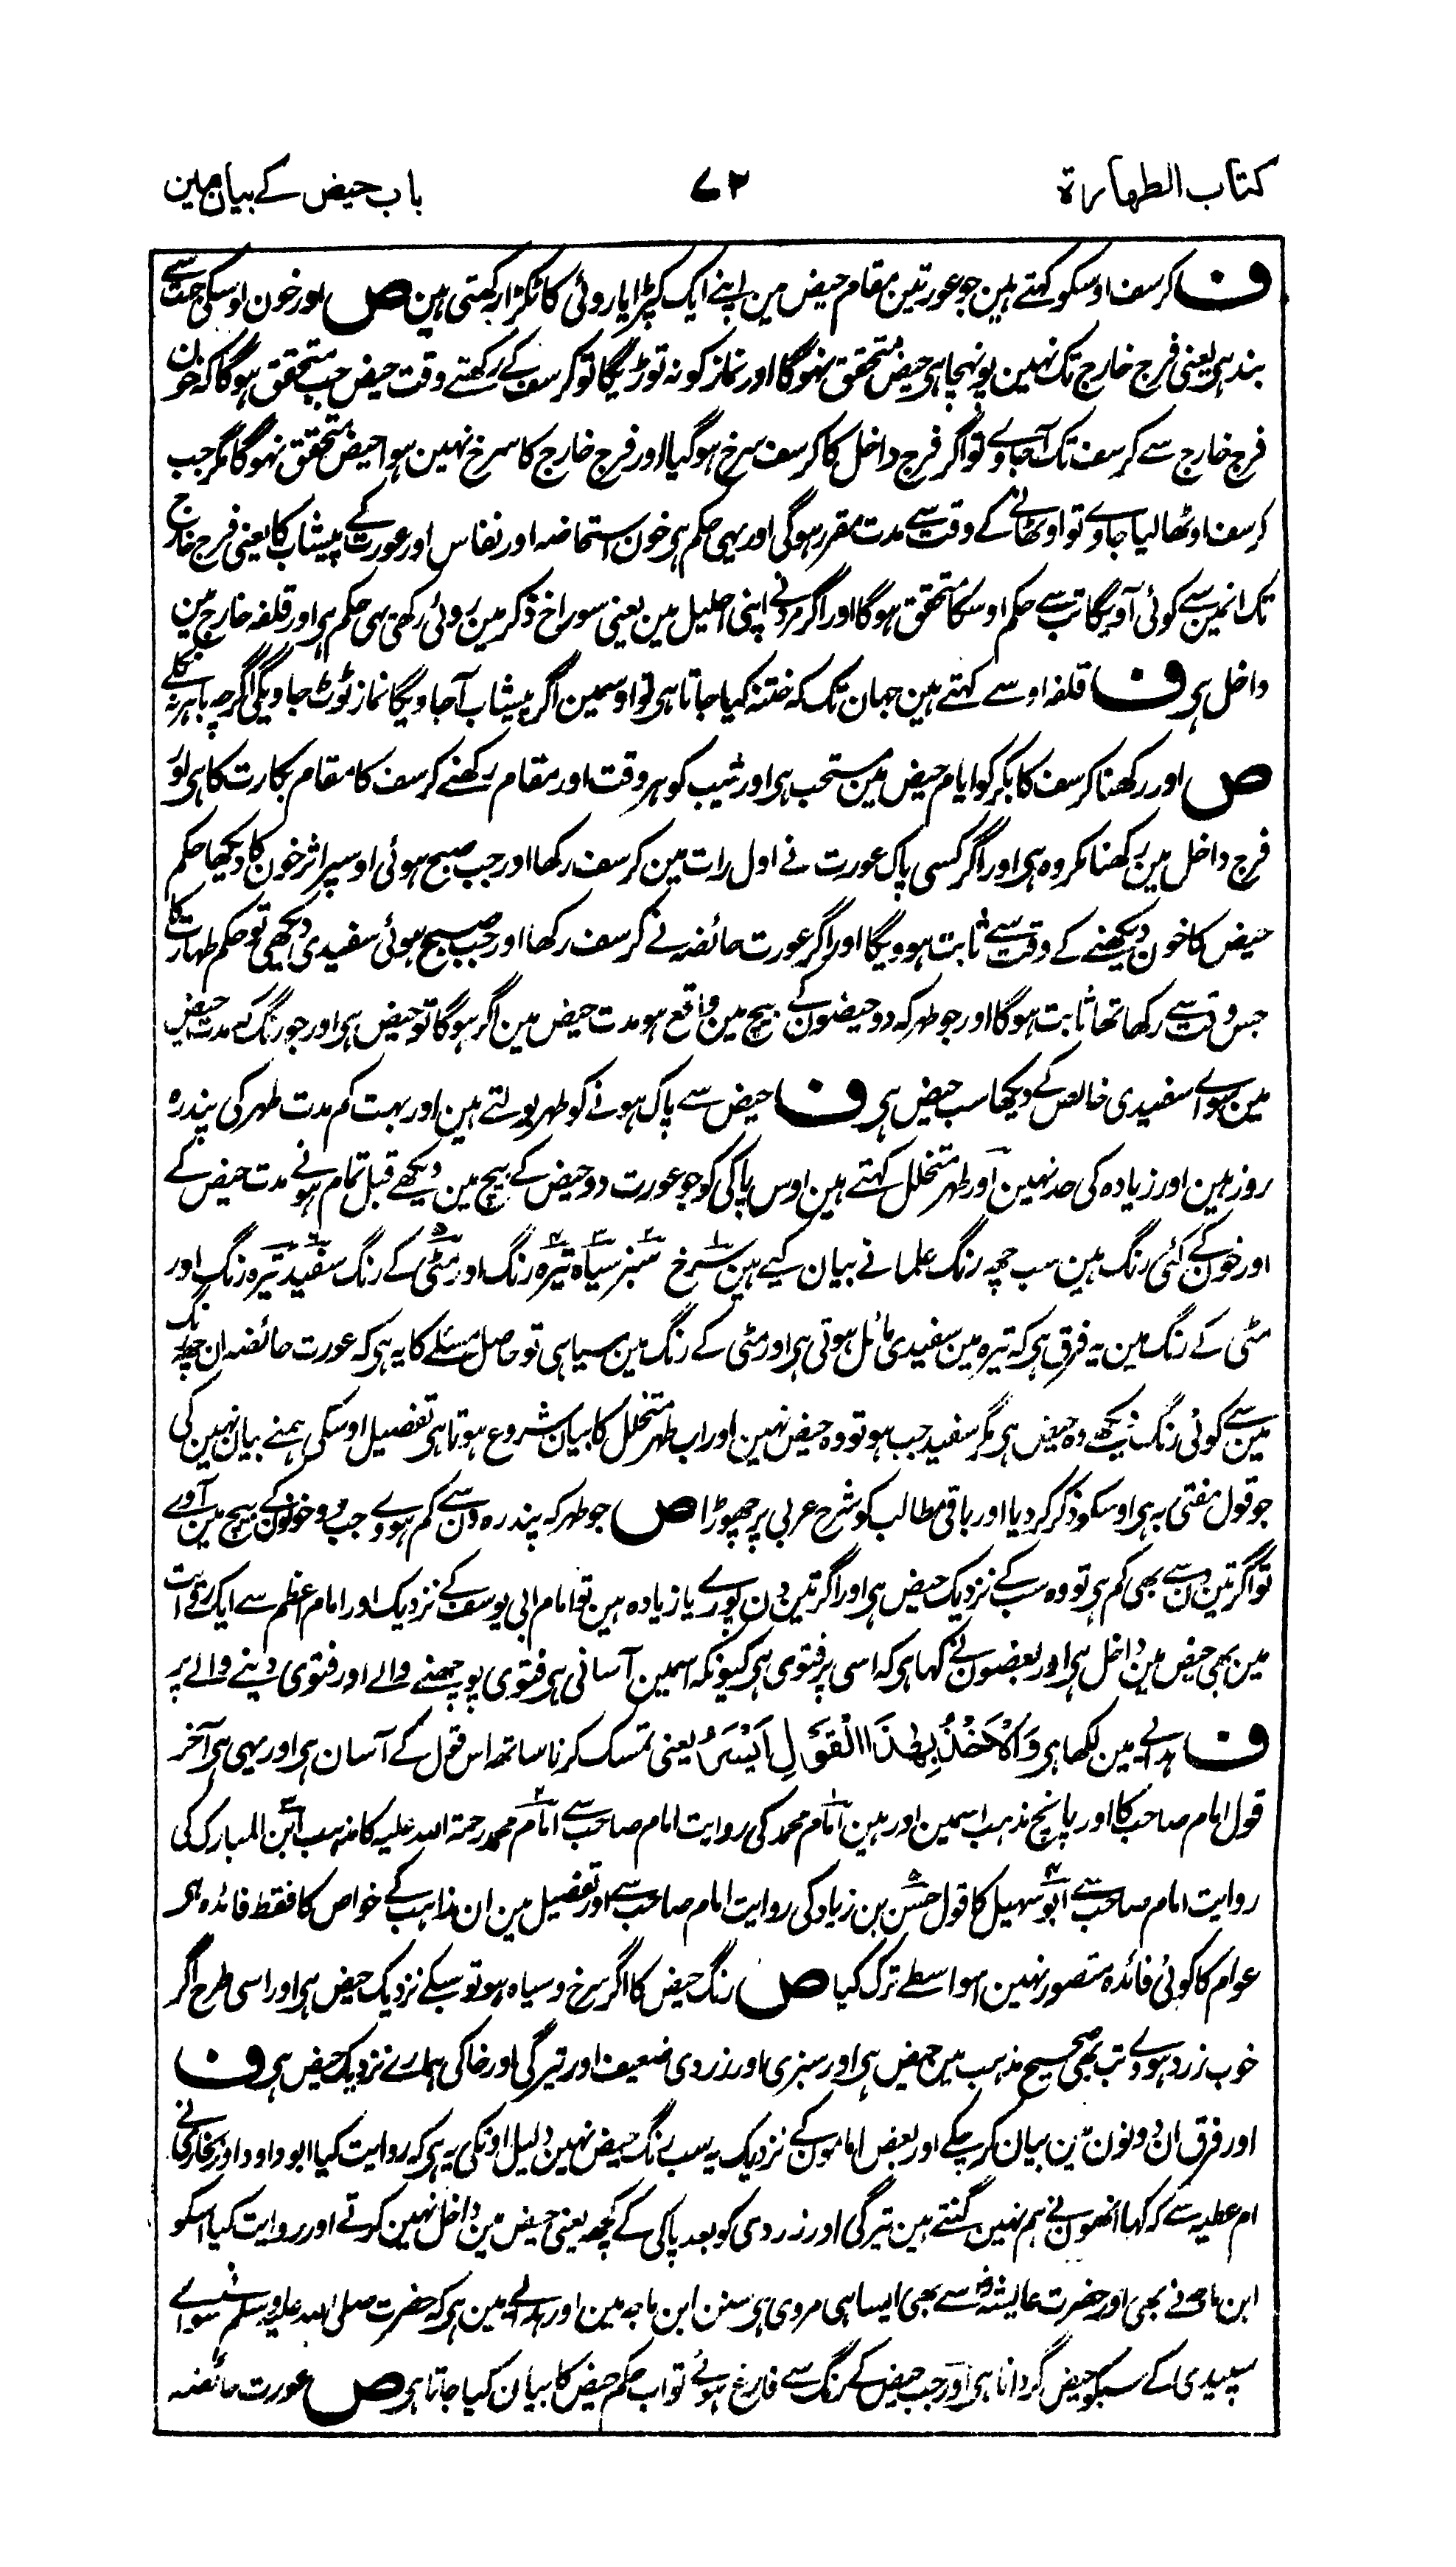 کتاب الطهارة ۷۲ باب حیض کے بیان مین
ف کرسف اوسکو کہتے ہین جو عورتین مقام حیض مین اپنے ایک کپڑا یا روئی کا ٹکڑا رکہتی ہین ص اور خون اوسکی جہت سے
بند ہی یعنی فرج خارج تک نہین پونہچا ہی حیض متحقق نہوگا اور نماز کو نہ توڑیگا تو کرسف کے رکھتے وقت حیض جب متحقق ہوگا کہ خون
فرج خارج سے کرسف تک آجاوے تو اگر فرج داخل کا کرسف سرخ ہوگیا اور فرج خارج کا سرخ نہین ہوا حیض متحقق نہوگا مگر جب
کرسف اوٹھا لیا جاوے تو اوٹھانے کے وقت سے مدت مقرر ہوگی اور یہی حکم ہی خون استحاضہ اور نفاس اور عورت کے پیشاب کا یعنی فرج خارج
تک انمین سے کوئی آویگا تب سے حکم اوسکا متحقق ہوگا اور اگر مرد نے اپنی احلیل مین یعنی سوراخ ذکر مین روئی رکھی یہی حکم ہی اور قلفہ خارج مین
داخل ہی ف قلفہ اوسے کہتے ہین جہان تک کہ ختنہ کیا جاتا ہی تو اوسمین اگر پیشاب آجاویگا نماز ٹوٹ جاویگی اگرچہ باہر نہ نکلے
ص اور رکھنا کرسف کا بکر کو ایام حیض مین مستحب ہی اور ثیب کو ہر وقت اور مقام رکھنے کرسف کا مقام بکارت کا ہی اور
فرج داخل مین رکھنا مکروہ ہی اور اگر کسی پاک عورت نے اول رات مین کرسف رکھا اور جب صبح ہوئی اوسپر اثر خون کا دیکھا حکم
حیض کا خون دیکھنے کے وقت سے ثابت ہوویگا اور اگر عورت حائضہ نے کرسف رکھا اور جب صبح ہوئی سفیدی دیکھی تو حکم طہارت کا
جس وقت سے رکھا تھا ثابت ہوگا اور جو طہر کہ دو حیضون کے بیچ مین واقع ہو مدت حیض مین اگر ہوگا تو حیض ہی اور جو رنگ کہ مدت حیض
مین سوائے سفیدی خالص کے دیکھا سب حیض ہی ف حیض سے پاک ہونے کو طہر بولتے ہین اور بہت کم مدت طہر کی پندرہ
روز ہین اور زیادہ کی حد نہین اور طہر متخلل کہتے ہین اوس پاکی کو جو عورت دو حیض کے بیچ مین دیکھے قبل تمام ہونے مدت حیض کے
اور خون کے کئی رنگ ہین سب چھہ رنگ علما نے بیان کیے ہین سرخ ۱ سبز ۲ سیاہ ۳ تیرہ رنگ ۴ اور مٹی کے رنگ ۵ سفید ۶ تیرہ رنگ اور
مٹی کے رنگ مین یہ فرق ہی کہ تیرہ مین سفیدی مائل ہوتی ہی اور مٹی کے رنگ مین سیاہی تو حاصل مسئلے کا یہ ہی کہ عورت حائضہ ان چھہ رنگ
مین سے کوئی رنگ دیکھے وہ حیض ہی مگر سفید جب ہو تو وہ حیض نہین اور اب طہر متخلل کا بیان شروع ہوتا ہی تفصیل اوسکی ہمنے بیان نہین کی
جو قول مفتی بہ ہی اوسکو ذکر کر دیا اور باقی مطالب کو شرح عربی پر چھوڑا ص جو طہر کہ پندرہ دن سے کم ہووے جب دو خون کے بیچ مین آوے
تو اگر تین دن سے بھی کم ہی تو وہ سب کے نزدیک حیض ہی اور اگر تین دن پورے یا زیادہ ہین تو امام ابی یوسف کے نزدیک اور امام اعظم سے ایک روایت
مین بھی حیض مین داخل ہی اور بعضون نے کہا ہی کہ اسی پر فتوی ہی کیونکہ اسمین آسانی ہی فتوی پوچھنے والے اور فتوی دینے والے پر
ف ہدایے مین لکھا ہی وَالْأَخْذُ بِهٰذَا الْقَوْلِ أَيْسَرُ یعنی تمسک کرنا ساتھ اس قول کے آسان ہی اور یہی ہی آخر
قول امام صاحب کا اور پانچ مذہب اسمین اور ہین امام محمد کی روایت امام صاحب سے ۱ امام محمد رحمۃ اللہ علیہ کا مذہب ۲ ابن المبارک کی ۳
روایت امام صاحب سے ابو سہیل کا قول ۴ حسن بن زیاد کی روایت امام صاحب سے ۵ اور تفصیل مین ان مذاہب کے خواص کا فقط فائدہ ہی
عوام کا کوئی فائدہ متصور نہین اسواسطے ترک کیا ص رنگ حیض کا اگر سرخ و سیاہ ہو تو سبکے نزدیک حیض ہی اور اسی طرح اگر
خوب زرد ہووے تب بھی صحیح مذہب مین حیض ہی اور سبزی اور زردی ضعیف اور تیرگی اور خاکی ہمارے نزدیک حیض ہی ف
اور فرق ان دونون مین بیان کر چکے اور بعض امامون کے نزدیک یہ سب رنگ حیض نہین دلیل اونکی یہ ہی کہ روایت کیا ابو داود اور بخاری نے
ام عطیہ سے کہ کہا انھون نے ہم نہین گنتے ہین تیرگی اور زردی کو بعد پاکی کے کچھ یعنی حیض مین داخل نہین کرتے اور روایت کیا اسکو
ابن ماجہ نے بھی اور حضرت عایشہ رض سے بھی ایسا ہی مروی ہی سنن ابن ماجہ مین اور ہدایے مین ہی کہ حضرت صلی اللہ علیہ وسلم نے سوائے
سپیدی کے سبکو حیض گردانا ہی اور جب حیض کے رنگ سے فارغ ہوئے تو اب حکم حیض کا بیان کیا جاتا ہی ص عورت حائضہ